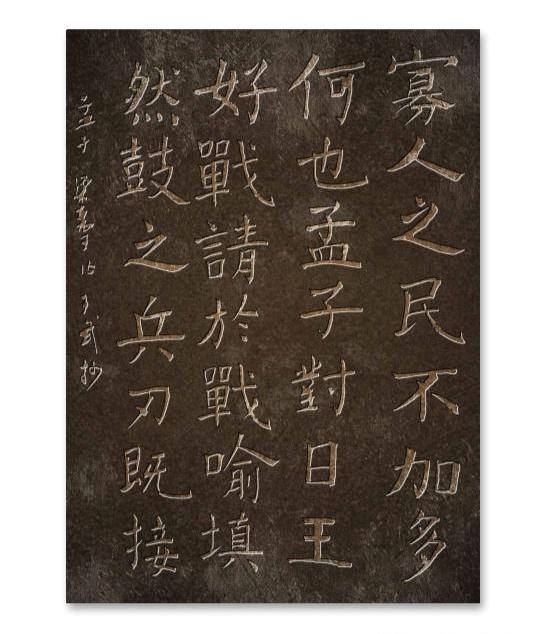 寡人之民不加多
何也孟子對曰王
好戰請於戰喻填
然鼓之兵刃既接
孟子 梁惠王 抄